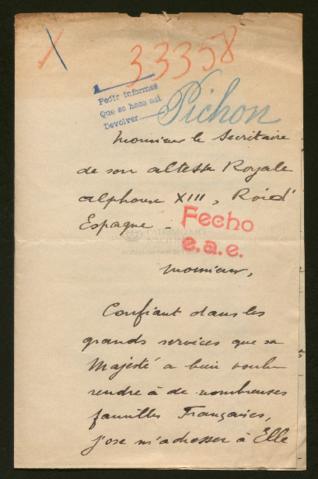 X
33358
Pedir informes
Que se haga así
Devolver
Pichon
Monsieur le Secrétaire
de son altesse Royale
alphonse XIII, Roi d'
Espagne -
Fecho
e.a.e.
Monsieur,
Confiant dans les
grands services que sa
Majesté a bien voulu
rendre à de nombreuses
familles Françaises,
j'ose m'adresser à Elle